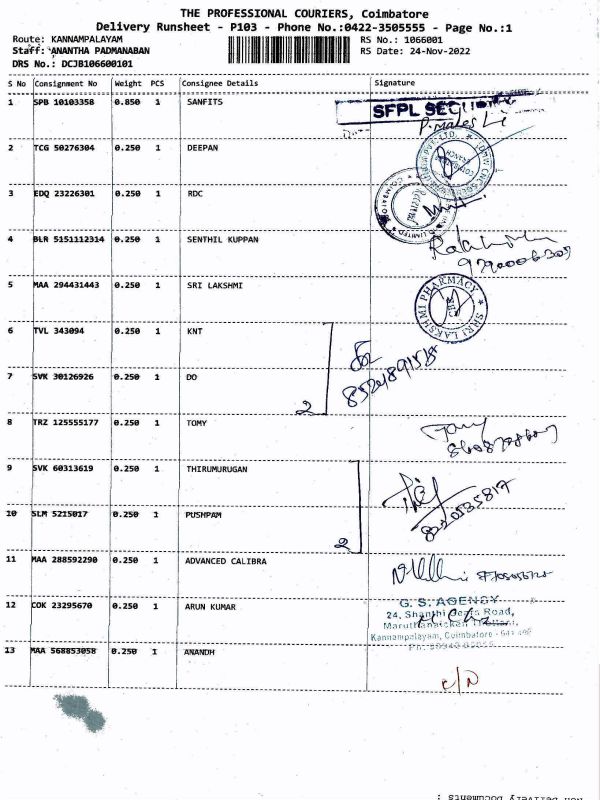 THE PROFESSIONAL COURIERS, Coimbatore
Delivery Runsheet - P103 - Phone No.:0422-3505555 - Page No.:1
Route: KANNAMPALAYAM RS No.: 1066001
Staff: ANANTHA PADMANABAN RS Date: 24-Nov-2022
DRS No.: DCJB106600101
S No Consignment No Weight PCS Consignee Details Signature
1 SPB 10103358 0.850 1 SANFITS
SFPL
2 TCG 50276304 0.250 1 DEEPAN
3 EDQ 23226301 0.250 1 RDC
4 BLR 5151112314 0.250 1 SENTHIL KUPPAN
5 MAA 294431443 0.250 1 SRI LAKSHMI
SHRI LAKSHMI PHARMACY
CBE
6 TVL 343094 0.250 1 KNT
7 SVK 30126926 0.250 1 DO
2
8 TRZ 125555177 0.250 1 TOMY
9 SVK 60313619 0.250 1 THIRUMURUGAN
10 SLM 5215017 0.250 1 PUSHPAM
8220535817
2
11 MAA 288592290 0.250 1 ADVANCED CALIBRA
12 COK 23295670 0.250 1 ARUN KUMAR
G. S. AGENCY
24, Shanthi Road,
Kannampalayam, Coimbatore
13 MAA 568853058 0.250 1 ANANDH
C/N
Non Delivery Documents :